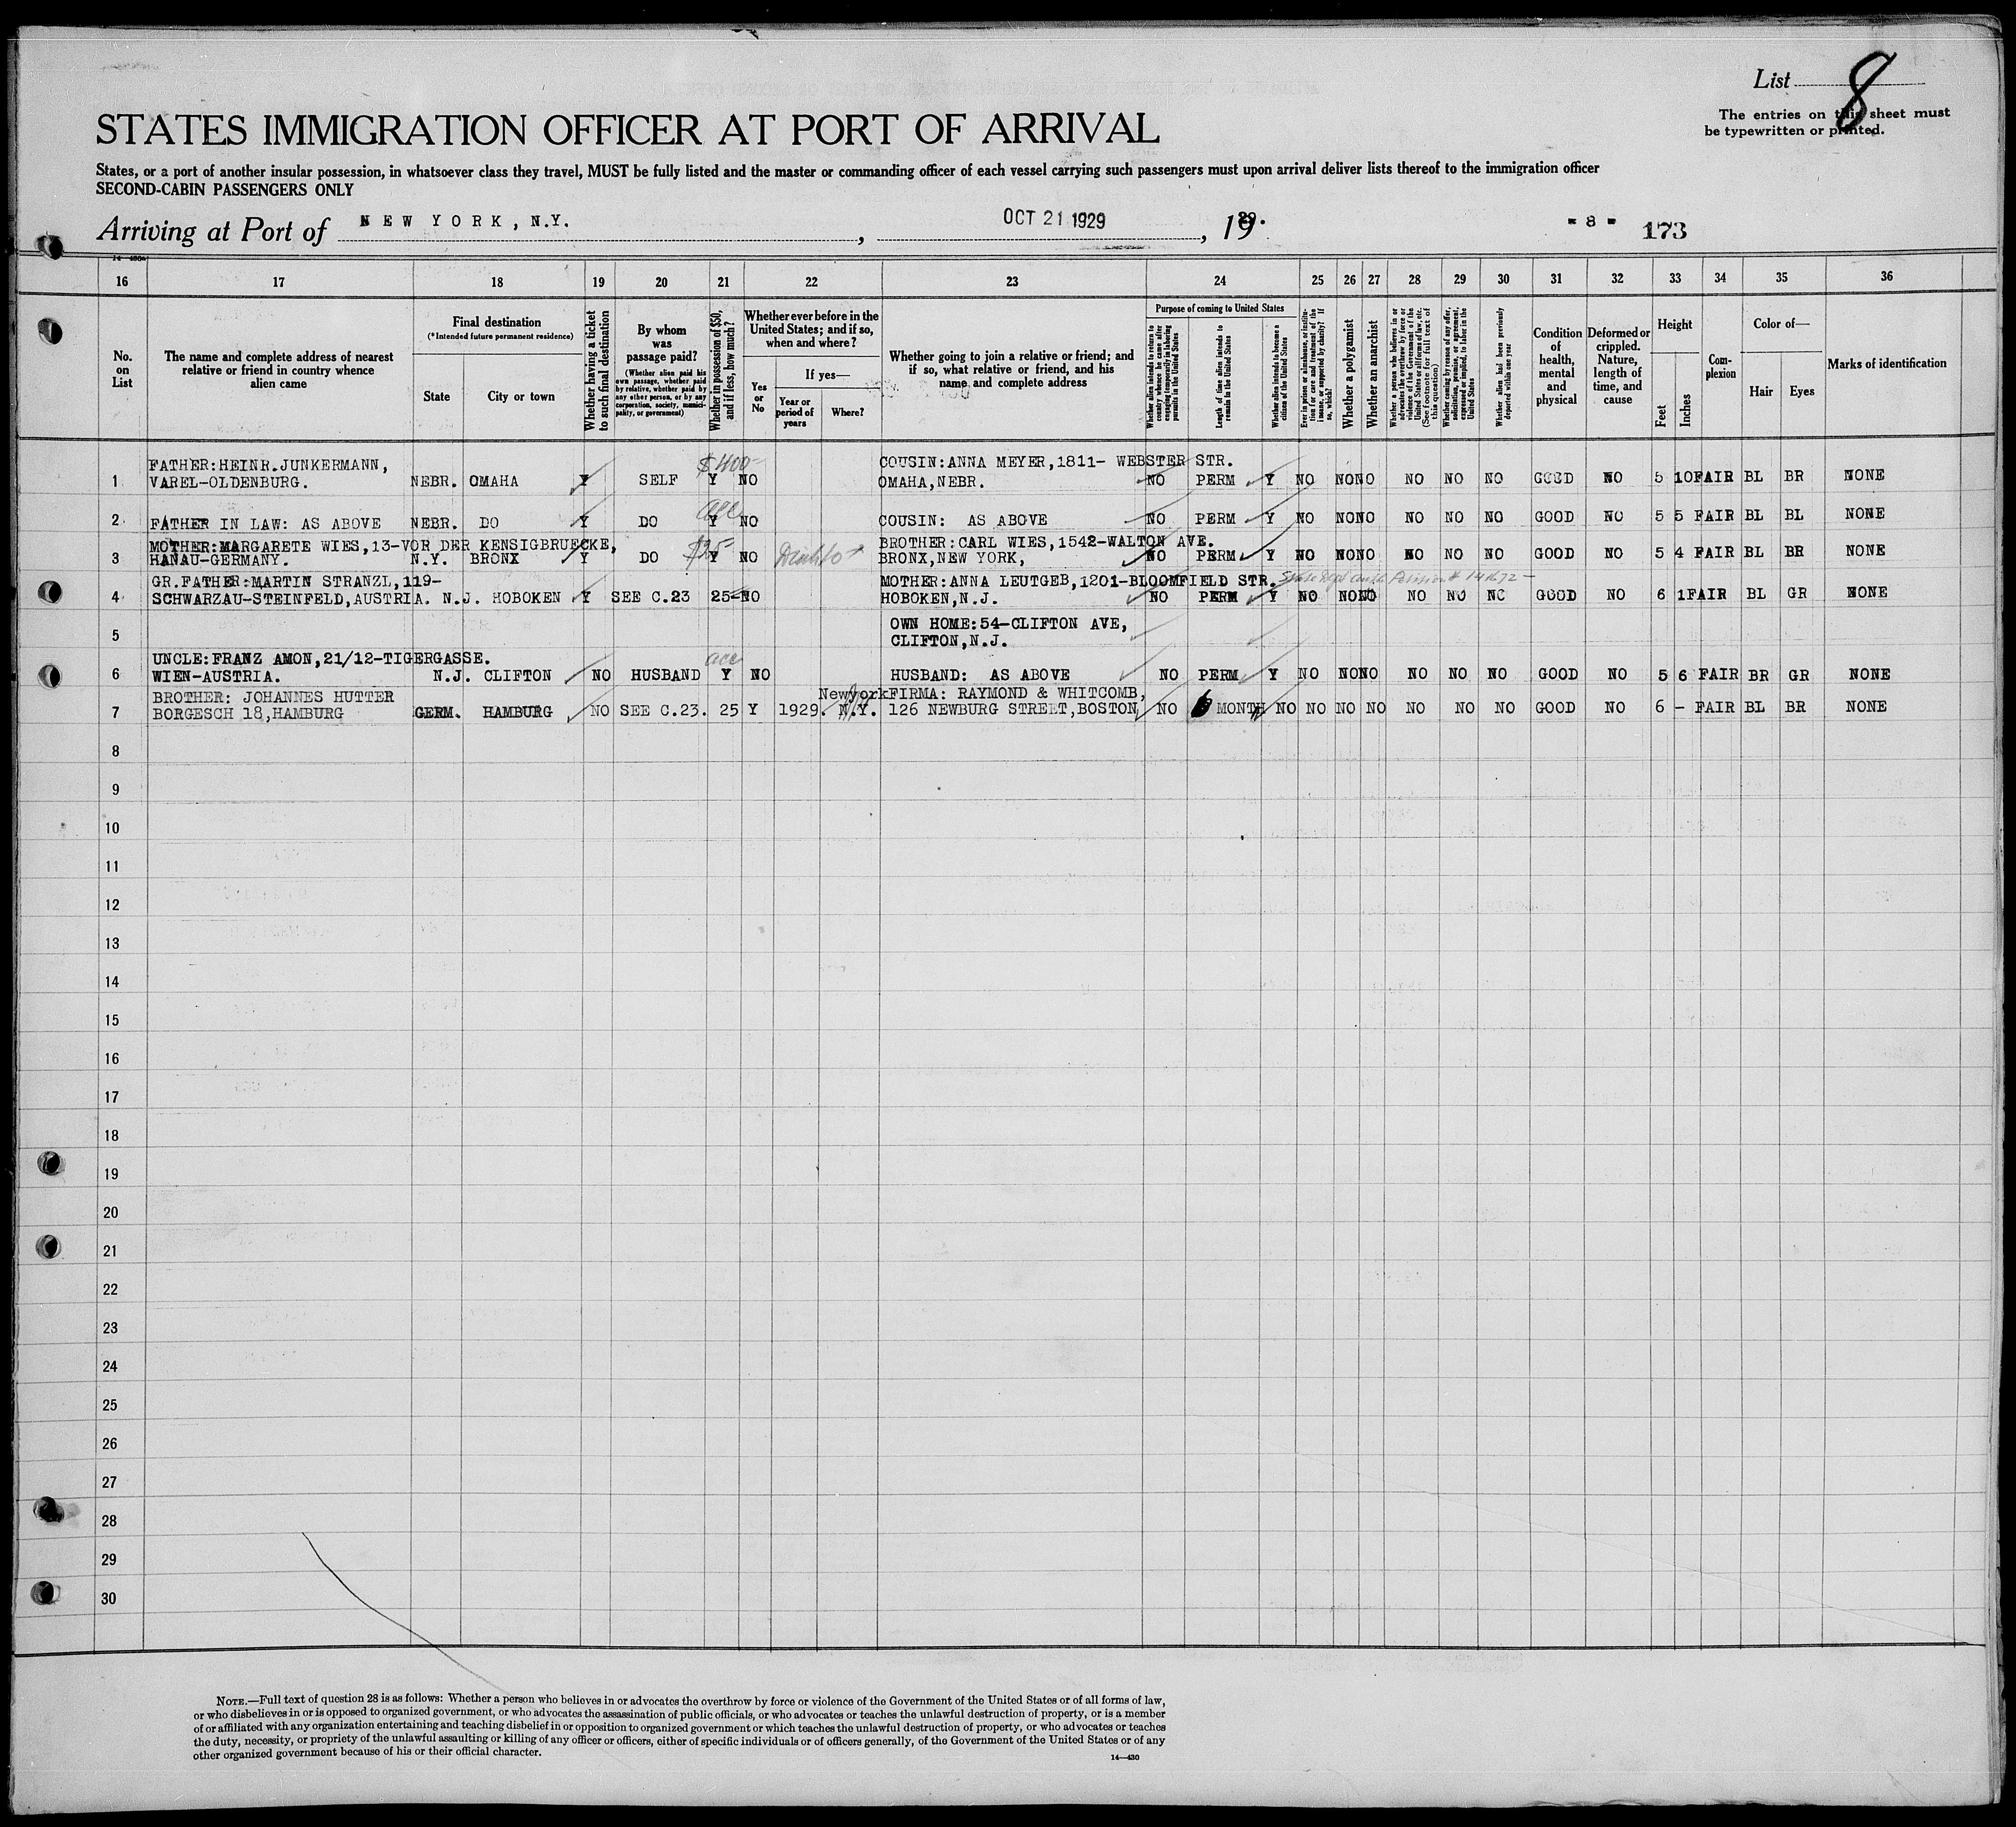 List 8
The entries on this sheet must
be typewritten or printed.
STATES IMMIGRATION OFFICER AT PORT OF ARRIVAL
States, or a port of another insular possession, in whatsoever class they travel, MUST be fully listed and the master or commanding officer of each vessel carrying such passengers must upon arrival deliver lists thereof to the immigration officer
SECOND-CABIN PASSENGERS ONLY
Arriving at Port of NEW YORK, N.Y. , OCT 21 1929 , 1929. - 8 - 173
16 17 18 19 20 21 22 23 24 25 26 27 28 29 30 31 32 33 34 35 36
No. on List
The name and complete address of nearest relative or friend in country whence alien came
Final destination
(*Intended future permanent residence)
State
City or town
Whether having a ticket to such final destination
By whom was passage paid?
(Whether alien paid his own passage, whether paid by relative, whether paid by any other person, or by any corporation, society, municipality, or government)
Whether in possession of $50, and if less, how much?
Whether ever before in the United States; and if so, when and where?
Yes or No
If yes—
Year or period of years
Where?
Whether going to join a relative or friend; and if so, what relative or friend, and his name and complete address
Purpose of coming to United States
Whether alien intends to return to country whence he came after engaging temporarily in laboring pursuits in the United States
Length of time alien intends to remain in the United States
Whether alien intends to become a citizen of the United States
Ever in prison or almshouse, or institution for care and treatment of the insane, or supported by charity? If so, which?
Whether a polygamist
Whether an anarchist
Whether a person who believes in or advocates the overthrow by force or violence of the Government of the United States or all forms of law, etc. (See footnote for full text of this question)
Whether coming by reason of any offer, solicitation, promise, or agreement, expressed or implied, to labor in the United States
Whether alien had been previously deported within one year
Condition of health, mental and physical
Deformed or crippled. Nature, length of time, and cause
Height
Feet
Inches
Complexion
Color of—
Hair
Eyes
Marks of identification
FATHER:HEINR.JUNKERMANN, $400- COUSIN:ANNA MEYER,1811- WEBSTER STR.
1 VAREL-OLDENBURG. NEBR. OMAHA Y SELF Y NO OMAHA,NEBR. NO PERM Y NO NO NO NO NO NO GOOD NO 5 10 FAIR BL BR NONE
2 FATHER IN LAW: AS ABOVE NEBR. DO Y DO Y NO COUSIN: AS ABOVE NO PERM Y NO NO NO NO NO NO GOOD NO 5 5 FAIR BL BL NONE
MOTHER:MARGARETE WIES,13-VOR DER KENSIGBRUECKE, BROTHER:CARL WIES,1542-WALTON AVE.
3 HANAU-GERMANY. N.Y. BRONX Y DO Y NO BRONX,NEW YORK, NO PERM Y NO NO NO NO NO NO GOOD NO 5 4 FAIR BL BR NONE
GR.FATHER:MARTIN STRANZL,119- MOTHER:ANNA LEUTGEB,1201-BLOOMFIELD STR.
4 SCHWARZAU-STEINFELD,AUSTRIA. N.J. HOBOKEN Y SEE C.23 25- NO HOBOKEN,N.J. NO PERM Y NO NO NO NO NO NO GOOD NO 6 1 FAIR BL GR NONE
OWN HOME:54-CLIFTON AVE,
5 CLIFTON,N.J.
UNCLE:FRANZ AMON,21/12-TIGERGASSE.
6 WIEN-AUSTRIA. N.J. CLIFTON NO HUSBAND Y NO HUSBAND: AS ABOVE NO PERM Y NO NO NO NO NO NO GOOD NO 5 6 FAIR BR GR NONE
BROTHER: JOHANNES HUTTER New York FIRMA: RAYMOND & WHITCOMB,
7 BORGESCH 18,HAMBURG GERM. HAMBURG NO SEE C.23. 25 Y 1929. N.Y. 126 NEWBURG STREET,BOSTON NO 6 MONTH NO NO NO NO NO NO NO GOOD NO 6 - FAIR BL BR NONE
8
9
10
11
12
13
14
15
16
17
18
19
20
21
22
23
24
25
26
27
28
29
30
NOTE.—Full text of question 28 is as follows: Whether a person who believes in or advocates the overthrow by force or violence of the Government of the United States or of all forms of law,
or who disbelieves in or is opposed to organized government, or who advocates the assassination of public officials, or who advocates or teaches the unlawful destruction of property, or is a member
of or affiliated with any organization entertaining and teaching disbelief in or opposition to organized government or which teaches the unlawful destruction of property, or who advocates or teaches
the duty, necessity, or propriety of the unlawful assaulting or killing of any officer or officers, either of specific individuals or of officers generally, of the Government of the United States or of any
other organized government because of his or their official character.
14—430